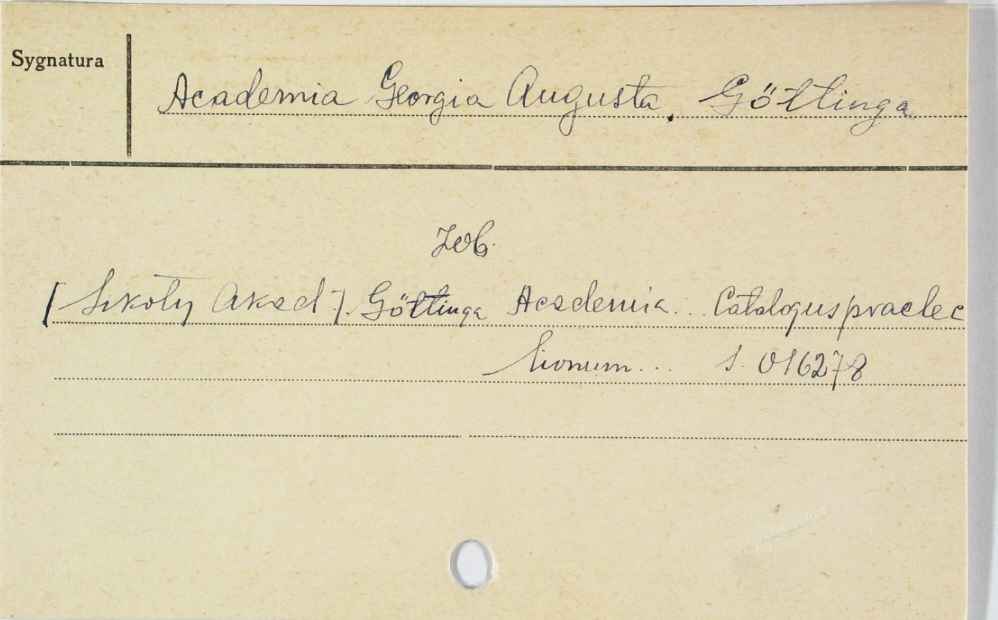 Sygnatura
Academia Georgia Augusta, Göttinga
Zob.
[Szkoły Akad]. Göttinga Academia... Catalogus praelec
tionum... S. 016278